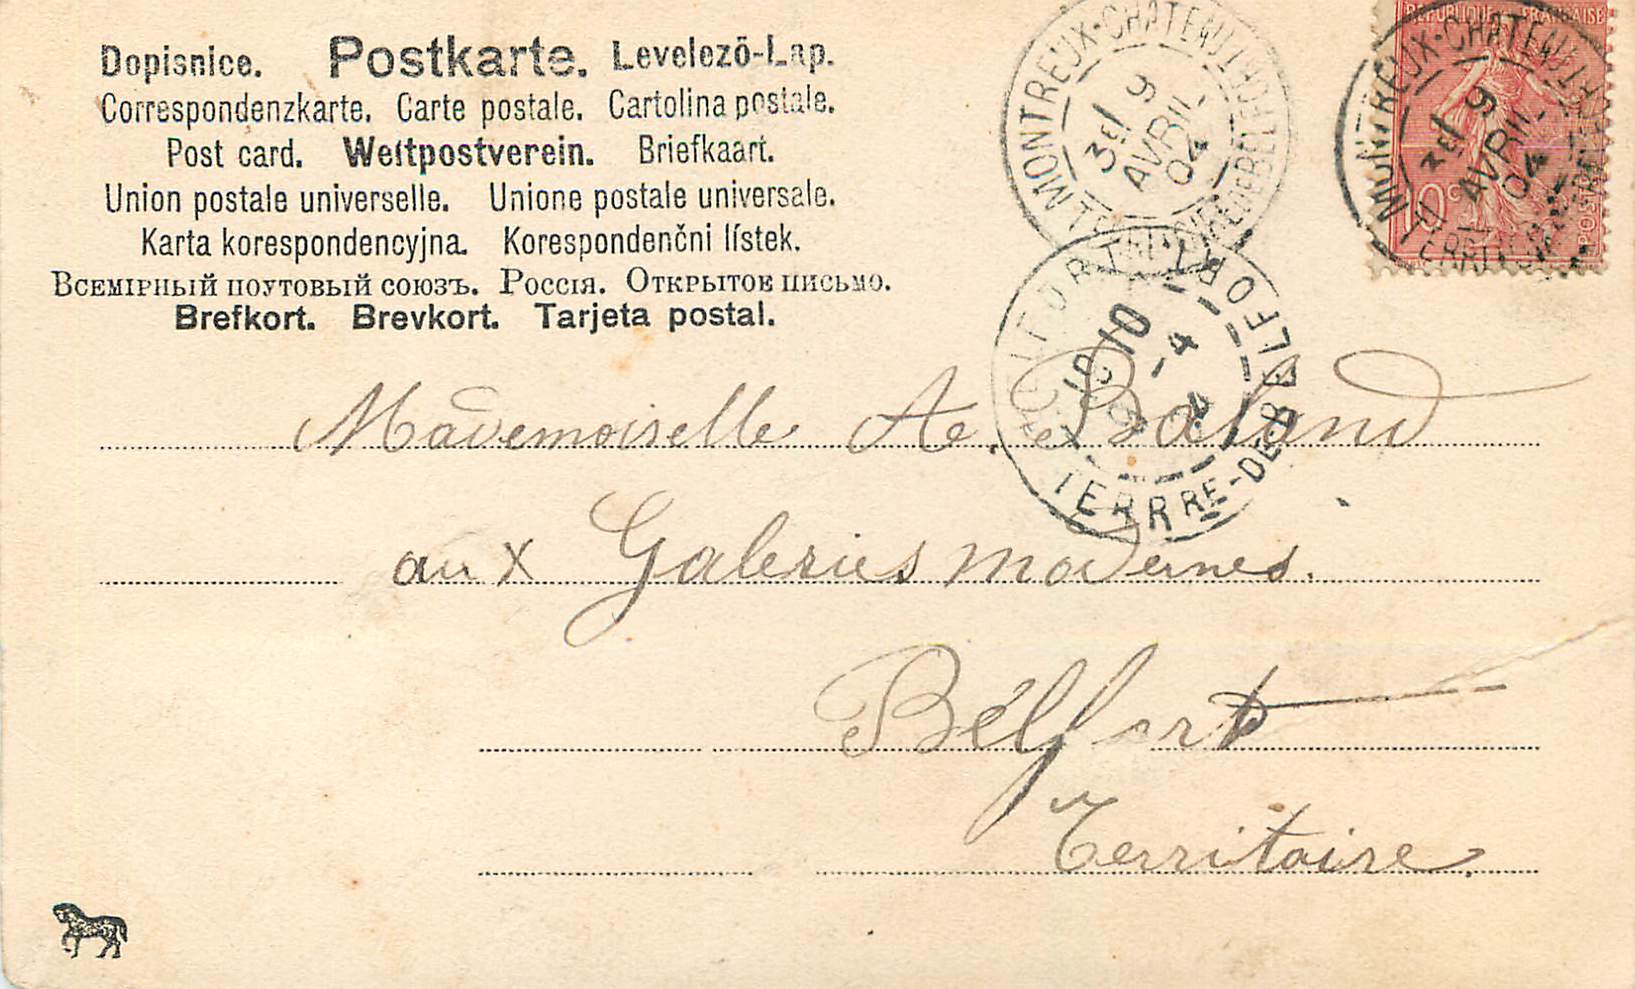 Dopisnice. Postkarte. Levelező-Lap.
Correspondenzkarte. Carte postale. Cartolina postale.
Post card. Weltpostverein. Briefkaart.
Union postale universelle. Unione postale universale.
Karta korespondencyjna. Korespondenčni lístek.
Всемірный поутовый союзъ. Россія. Открытое письмо.
Brefkort. Brevkort. Tarjeta postal.
MONTREUX-CHATEAU
3E 9
AVRIL
04
REPUBLIQUE FRANÇAISE
10c
POSTES
MONTREUX-CHATEAU
3E 9
AVRIL
04
BELFORT
10
-4
TERRRE-DE-BELFORT
Mademoiselle A. Baland
aux Galeries modernes.
Bélfort
Territoire